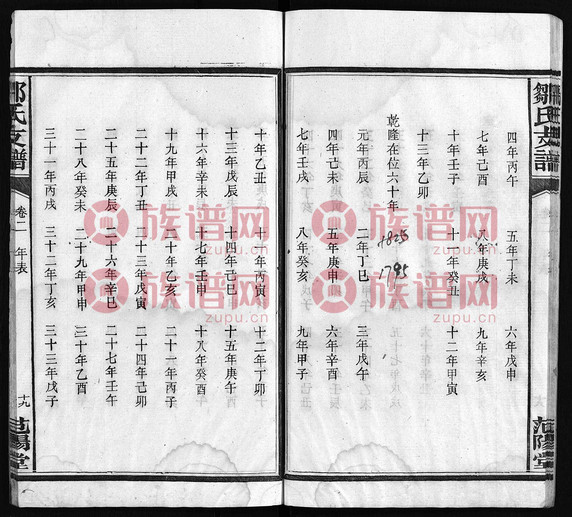 鄒氏支譜
四年丙午 五年丁未 六年戊申
七年己酉 八年庚戌 九年辛亥
十年壬子 十一年癸丑 十二年甲寅
十三年乙卯
乾隆在位六十年
1795
元年丙辰 二年丁巳 三年戊午
四年己未 五年庚申 六年辛酉
七年壬戌 八年癸亥 九年甲子
范陽堂
十年乙丑 十一年丙寅 十二年丁卯
十三年戊辰 十四年己巳 十五年庚午
十六年辛未 十七年壬申 十八年癸酉
十九年甲戌 二十年乙亥 二十一年丙子
二十二年丁丑 二十三年戊寅 二十四年己卯
二十五年庚辰 二十六年辛巳 二十七年壬午
二十八年癸未 二十九年甲申 三十年乙酉
三十一年丙戌 三十二年丁亥 三十三年戊子
鄒氏支譜
卷二 年表
十九
范陽堂
族谱网
zupu.cn
族谱网
zupu.cn
族谱网
zupu.cn
族谱网
zupu.cn